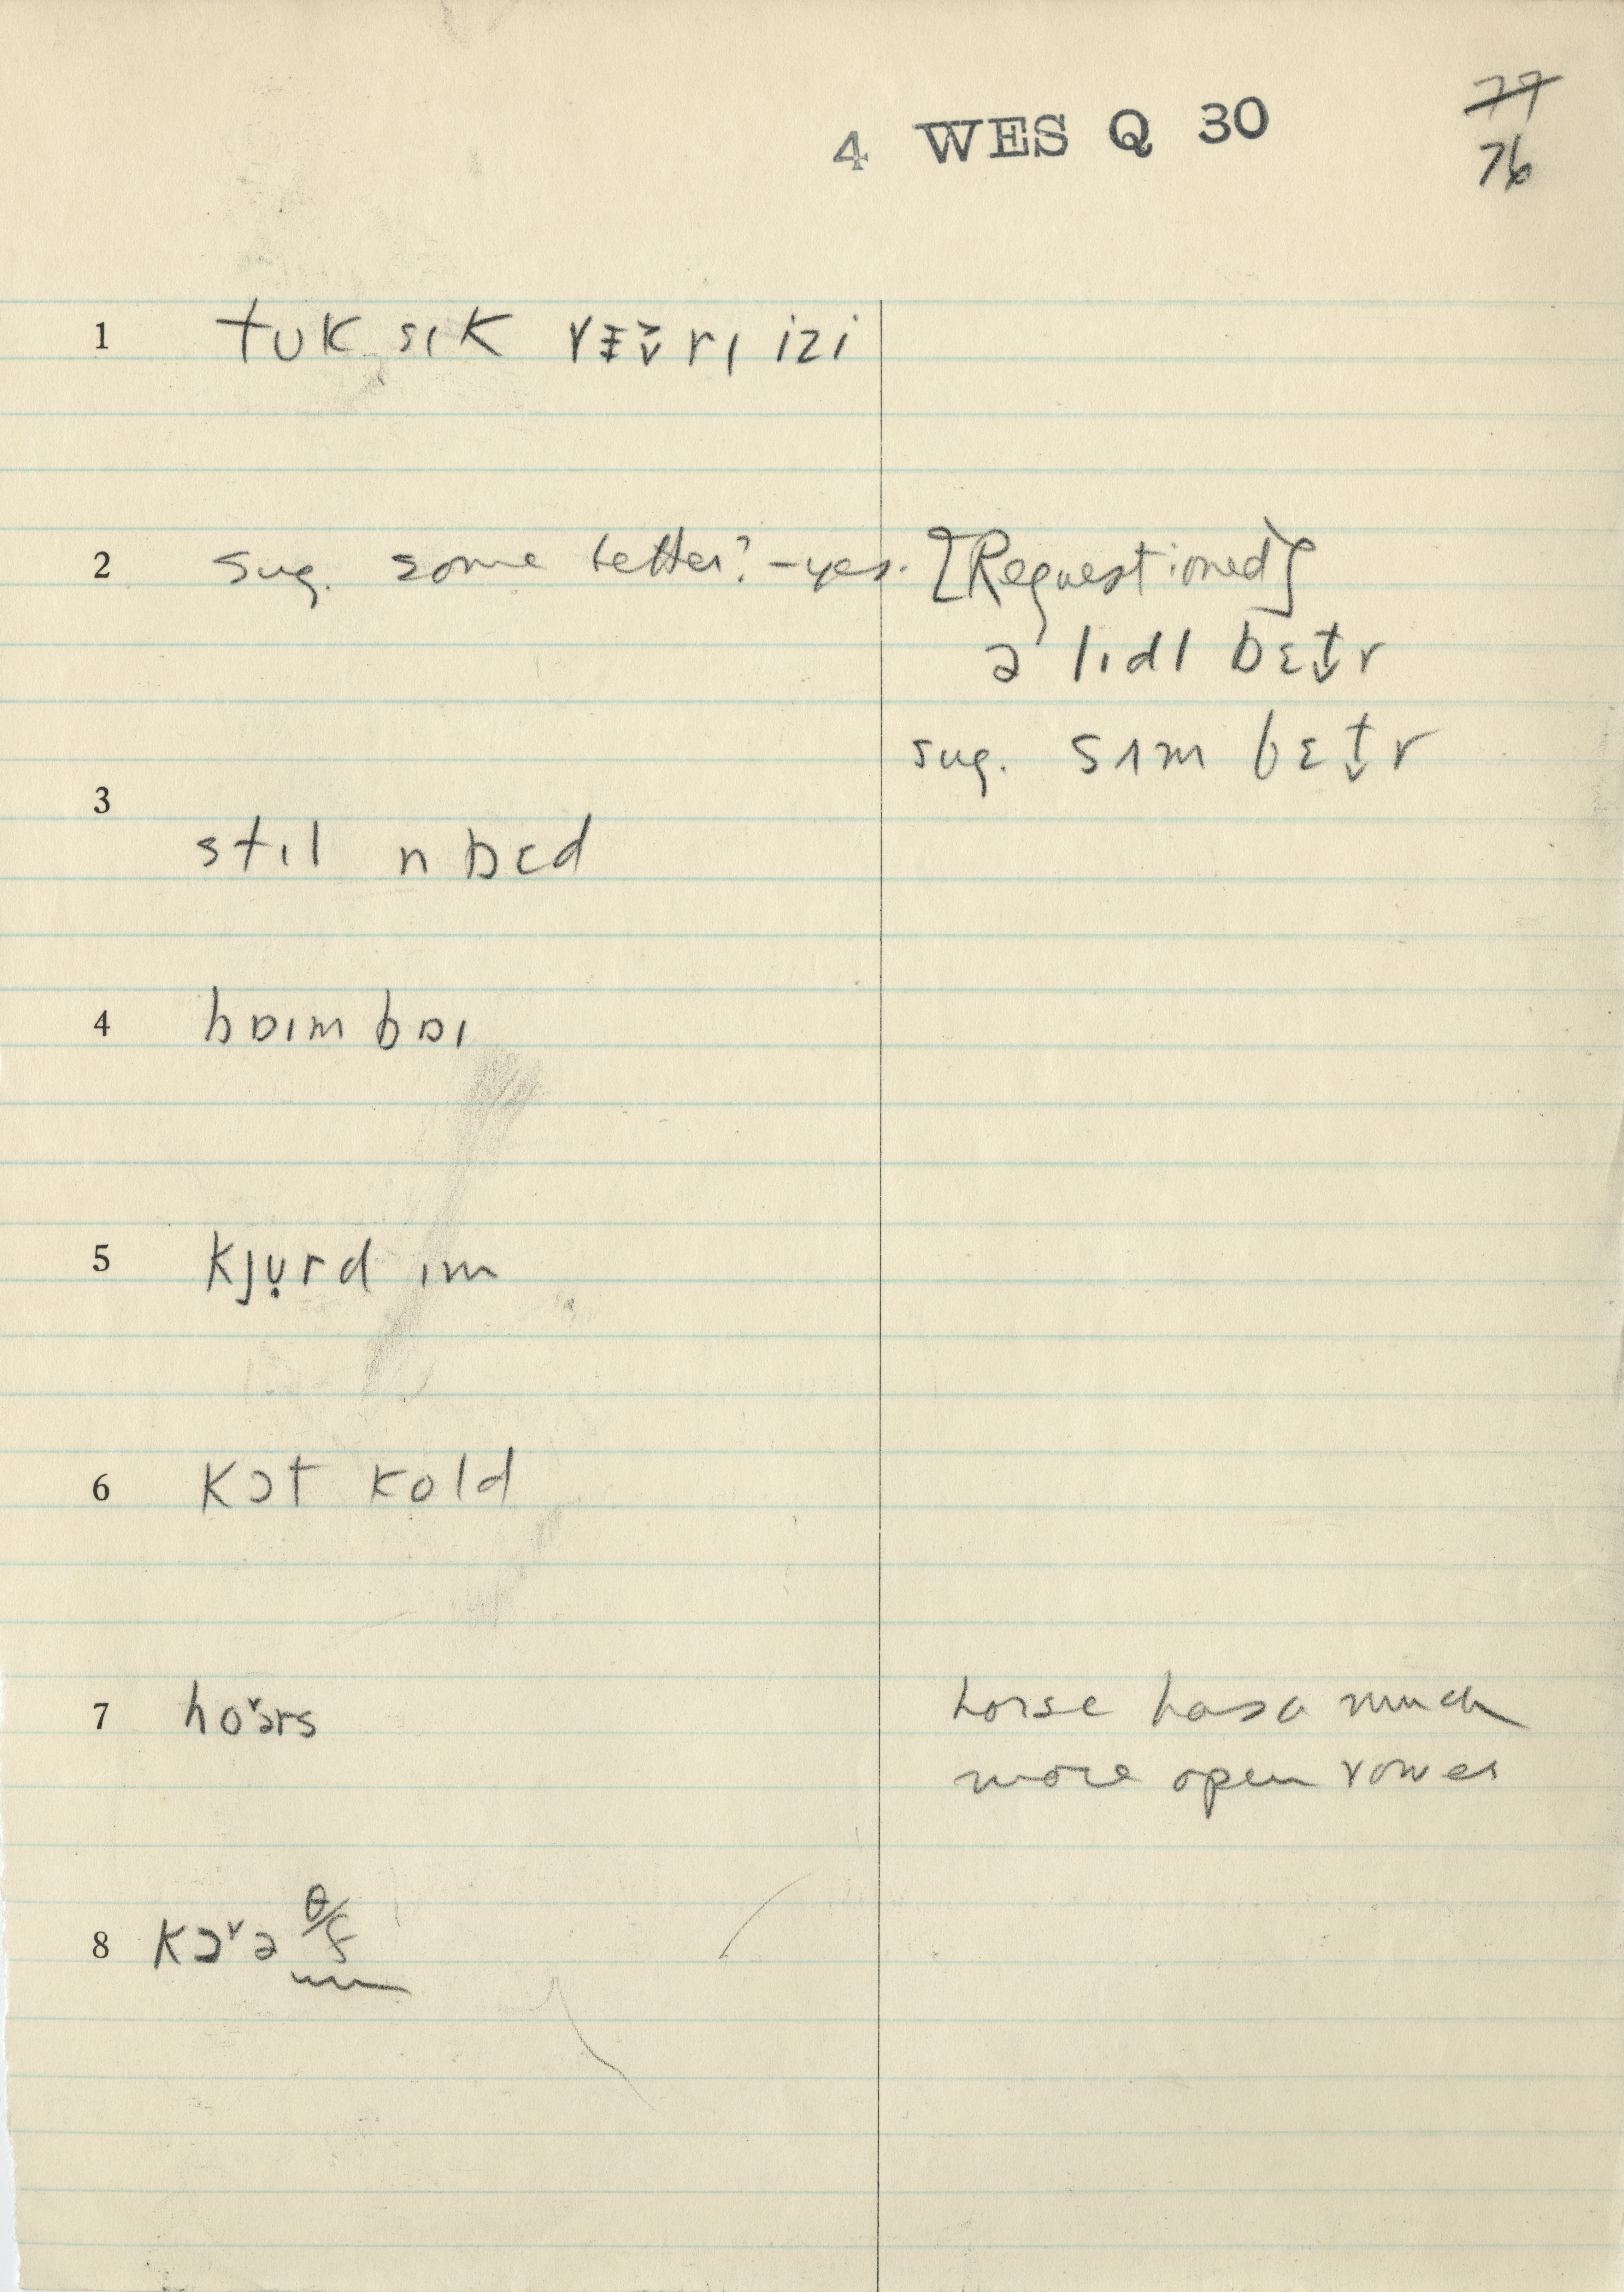 4 WES Q 30
77
76
1 tʊk sɪk vɛ̌rɪ izi
2 sug. some better? - yes. [Requestioned]
ə lɪdl bɛt̬r
sug. sʌm bɛt̬r
3
stɪl n bɛd
4 bɒɪm bɒɪ
5 kjụrd ɪm
6 kɔt kold
7 hoˇərs horse has a much
more open vowel
8 kɔˇə θ/f